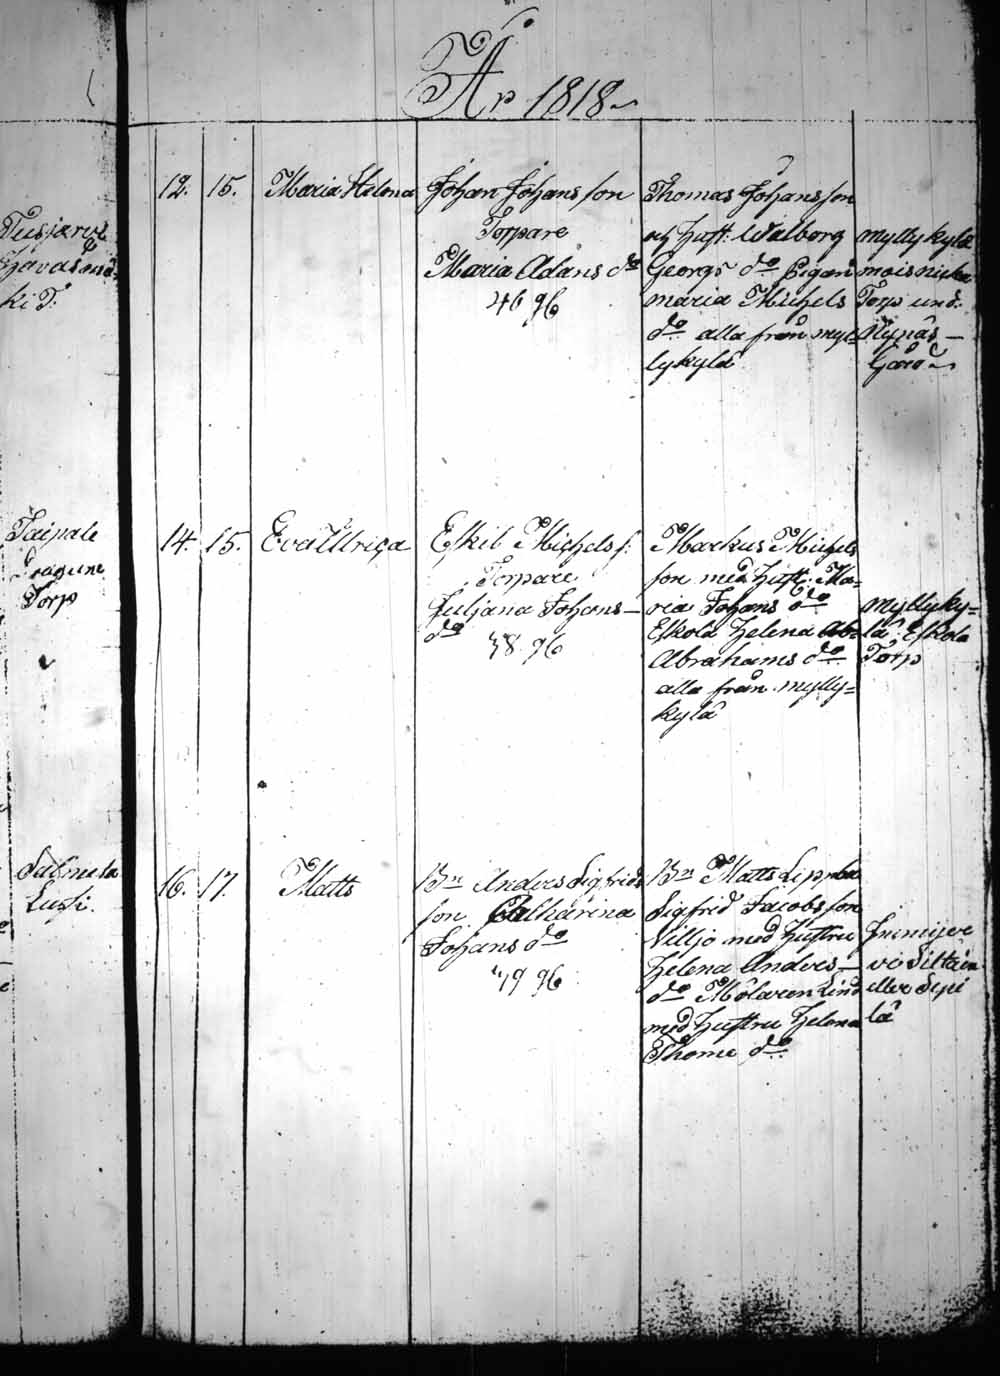 År 1818
Tusjärvi
ki T.
12. 15. Maria Helena
Johan Johansson
Torpare
Maria Adams do
46 96
Thomas Johansson
och Hust: Walborg
Georgs do Pigan
Maria Michels
do alla från myl=
lykylä
myllykylä
Torp und:
Nynäs
Gård
Taipale
Torp
14. 15. Eva Ulrica
Eskil Michels s:
Torpare
Juljana Johans—
do
38 96
Markus Michels
son med Hust: Ma=
ria Johans do
Eskola Helena Ab=
Abrahams do
alla från mylly=
kylä
myllyky=
lä Eskola
Torp
16. 17. Matts
Bn Anders Sigfrids
son Catharina
Johans do
39 96
Bn Matts Lippla
Sigfrid Jacobsson
Viljo med Hustru
Helena Anders—
do Målaren Lind
med Hustru Helena
Thome do
eller Sepi
lä